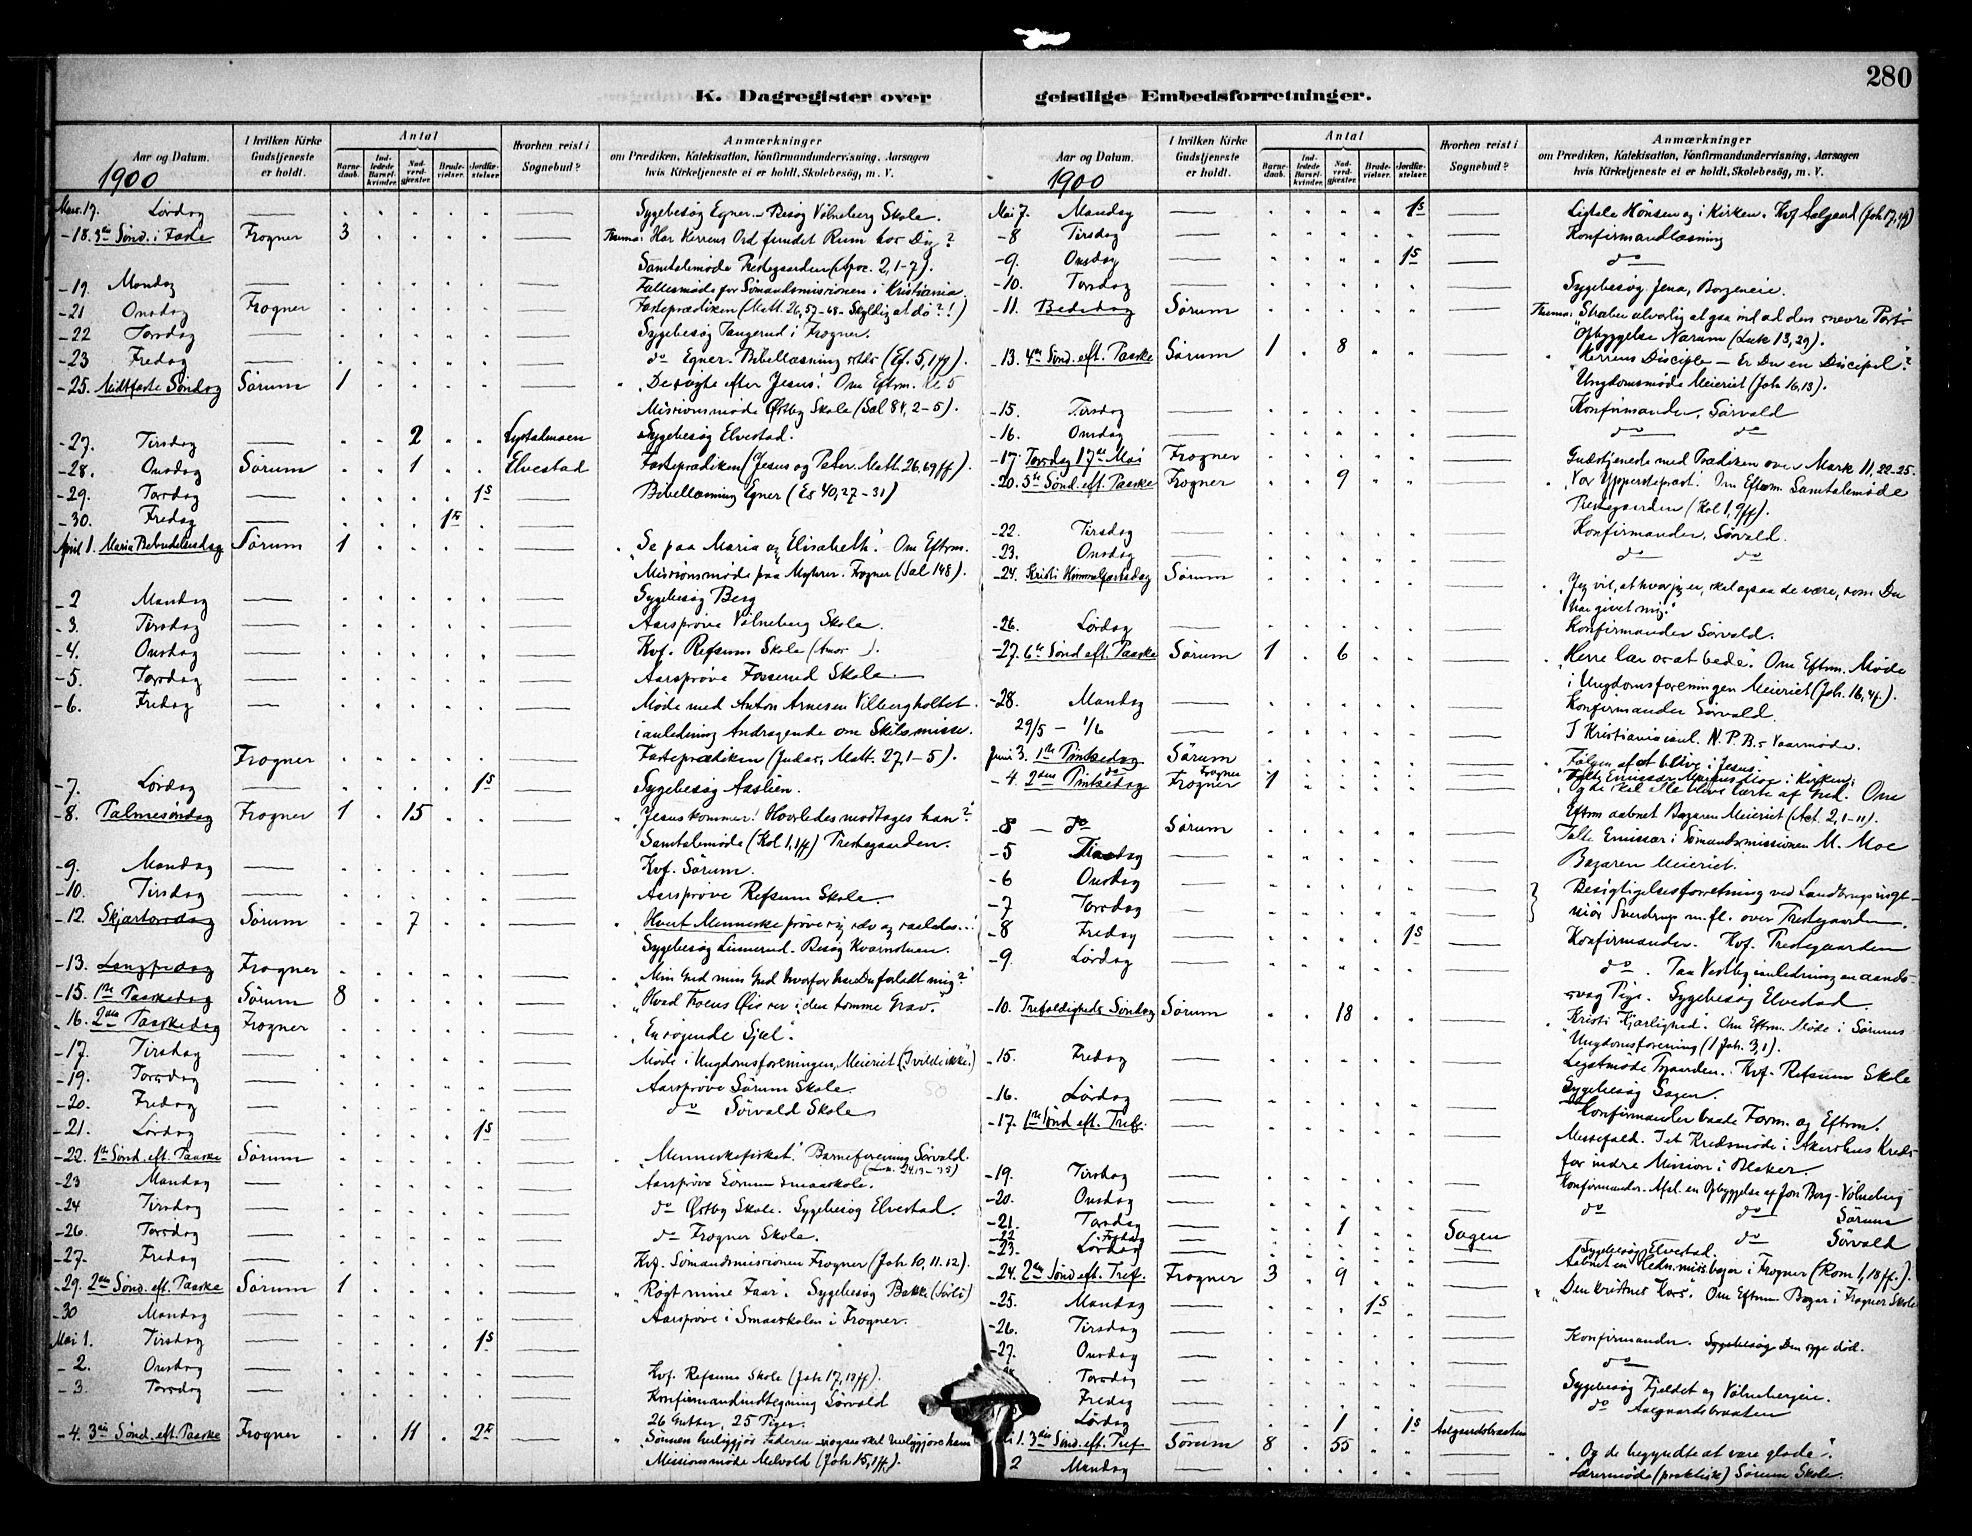 280
K. Dagregister over geistlige Embedsforretninger.
Aar og Datum.
I hvilken Kirke Gudstjeneste er holdt.
Antal
Barnedaab.
Indledede Barselkvinder.
Nadverdgjester.
Brudevielser.
Jordfæstelser.
Hvorhen reist i Sognebud?
Anmærkninger
om Prædiken, Katekisation, Konfirmandundervisning, Aarsagen
hvis Kirketjeneste ei er holdt, Skolebesøg, m. V.
1900
Mars 17. Lørdag Sygebesøg Egner. Besøg Vølneberg Skole.
-18. 3die Sønd. i Faste Frogner 3 Thema: Har Herrens Ord fundet Rum hos Dig?
Samtalemøde Prestegaarden (Apoc. 2,1-7).
-19. Mandag Fællesmøde for Sømandsmissionen i Kristiania.
-21 Onsdag Frogner Fasteprædiken (Matt. 26,57-68 - Skyldig at dø?!)
-22 Torsdag Sygebesøg Tangerud i Frogner.
-23 Fredag do Egner. Bibellæsning (Ef. 5,1ff).
-25. Midtfaste Søndag Sørum 1 De søgte efter Jesus. Om Eftrm. Kl. 5
Missionsmøde Østby Skole (Sal 84, 2-5).
-27. Tirsdag 2 Sygebesøg Elvestad.
-28. Onsdag Sørum 1 Elvestad Fasteprædiken (Jesus og Peter. Matth. 26,69ff).
-29. Torsdag 1s Bibellæsning Egner (Es 40,27-31)
-30. Fredag
April 1. Maria Bebudelsesdag Sørum 1 Se paa Maria og Elisabeth. Om Eftrm.
Missionsmøde paa Myhrer. Frogner (Sal 148).
-2 Mandag Sygebesøg Berg
-3. Tirsdag Aarsprøve Vølneberg Skole.
-4. Onsdag Kvf. Refsum Skole (Amos ).
-5. Torsdag Aarsprøve Fosserud Skole.
-6. Fredag Møde med Anton Arnesen Vilbergholtet
i anledning Andragende om Skilsmisse.
Frogner Fasteprædiken (Judas, Matt. 27,1-5).
-7. Lørdag 1s Sygebesøg Aaslien.
-8. Palmesøndag Frogner 1 15 Jesus kommer! Hvorledes modtages han?
Samtalemøde (Kol 1,1ff) Prestegaarden.
-9. Mandag Kvf. Sørum.
-10. Tirsdag Aarsprøve Refsum Skole.
-12. Skjærtorsdag Sørum 7 Hvert Menneske prøve sig selv og saaledes...
Sygebesøg Linnerud. Besøg Kvarnstuen.
-13. Langfredag Frogner Min Gud min Gud hvorfor har Du forladt mig?
-15. 1ste Paaskedag Sørum 8 Hvad Troens Øie ser i den tomme Grav.
-16. 2den Paaskedag Frogner En søgende Sjæl.
-17. Tirsdag Møde i Ungdomsforeningen, Meieriet (I vilde ikke.)
-19. Torsdag Aarsprøve Sørum Skole
-20. Fredag do Sørvald Skole
-21. Lørdag 1s
-22. 1ste Sønd. eft. Paaske Sørum Menneskefisket. Barneforening Sørvald.
(Luk. 24,13-35)
-23 Mandag Aarsprøve Sørum Smaaskole.
-24 Tirsdag do Østby Skole. Sygebesøg Elvestad.
-26. Torsdag do Frogner Skole.
-27. Fredag Kvf. Sømandsmissionen Frogner (Joh. 10,11.12).
-29. 2den Sønd. eft. Paaske Sørum 1 Røgt mine Faar. Sygebesøg Bakke
-30 Mandag Aarsprøve i Smaaskolen i Frogner.
Mai 1. Tirsdag 1s
-2. Onsdag Kvf. Refsum Skole (Joh 17,19ff).
-3. Torsdag Konfirmandindtegning Sørvald
26 Gutter, 25 Piger.
-4. 3die Sønd. eft. Paaske Frogner 11 Sønnen herliggjør Faderen
Missionsmøde Melvold (Joh 15,1ff).
Aar og Datum.
I hvilken Kirke Gudstjeneste er holdt.
Antal
Barnedaab.
Indledede Barselkvinder.
Nadverdgjester.
Brudevielser.
Jordfæstelser.
Hvorhen reist i Sognebud?
Anmærkninger
om Prædiken, Katekisation, Konfirmandundervisning, Aarsagen
hvis Kirketjeneste ei er holdt, Skolebesøg, m. V.
1900
Mai 7. Mandag 1s Ligtale Hønsen og i Kirken. Kvf Aalgaard (Joh 17,
-8 Tirsdag Konfirmandlæsning
-9. Onsdag 1s do
-10. Torsdag Sygebesøg Jena, Borgeneie.
-11. Bededag Sørum Thema: Stræber alvorlig at gaa ind ad den snevre Port
Opbyggelse Nærum (Luk 13,29).
-13. 4de Sønd. eft. Paaske Sørum 1 8 Herrens Disciple - Er Du en Discipel?
Ungdomsmøde Meieriet (Joh 16,13).
-15. Tirsdag Konfirmander, Sørvald
-16. Onsdag do do
-17. Torsdag 17de Mai Frogner Gudstjeneste med Prædiken over Mark 11,22-25.
-20. 5te Sønd. eft. Paaske Frogner 9 Vor Ypperstepræst. Om Eftrm. Samtalemøde
Prestegaarden (Kol 1,9ff).
-22. Tirsdag Konfirmander, Sørvald.
-23. Onsdag do do
-24. Kristi Himmelfartsdag Sørum Jeg vil, at hvor jeg er, skal ogsaa de være, som Du
har givet mig.
-26. Lørdag Konfirmander Sørvald.
-27. 6te Sønd. eft. Paaske Sørum 1 6 Herre lær os at bede. Om Eftrm. Møde
i Ungdomsforeningen Meieriet (Joh. 16,4f).
-28. Mandag Konfirmander Sørvald.
29/5 - 1/6 I Kristiania N.P.B.s Vaarmøde.
Juni 3. 1ste Pintsedag Sørum Følgen af at blive i Jesus.
do Frogner Talte Emissær Magnus Moe i Kirken.
-4. 2den Pintsedag Frogner 1 Og de skal alle blive lærte af Gud. Om
Eftrm aabnet Bazaren Meieriet (Act. 2,1-11).
-8 - do Sørum Talte Emissær i Sømandsmissionen M. Moe
-5 Tirsdag Bazaren Meieriet.
-6 Onsdag Besigtigelsesforretning ved Landbrugsingeniør
-7 Torsdag Sverdrup m.fl. over Prestegaarden.
-8 Fredag 1s Konfirmander. Kvf. Prestegaarden
-9. Lørdag do. Paa Vestby i anledning en aandssvag
Pige. Sygebesøg Elvestad
-10. Trefoldigheds Søndag Sørum 18 Kristi Kjærlighed. Om Eftrm. Møde i Sørums
Ungdomsforening (1 Joh. 3,1).
-15. Fredag Kvf. Refsum Skole
-16. Lørdag Sygebesøg Sagen.
Konfirmander baade Form. og Eftrm.
-17. 1ste Sønd eft. Tref. Messefald. I et Kredsmøde i Akershus Kreds
for indre Mission i Blaker.
-19. Tirsdag Konfirmander. Afsl. en Opbyggelse af Jon Berg - Vølneberg
-20. Onsdag do do Sørum
-21. Torsdag 1 Sagen do Sørvald
-22 Fredag Sygebesøg Elvestad.
-23. Lørdag Aabnet en Hedn.miss.bazar i Frogner (Rom 1,18ff.).
-24. 2den Sønd eft. Tref. Frogner 3 9 Den kristnes Kors. Om Eftrm Bazar i Frogner Skole
-25. Mandag 1s
-26. Tirsdag Konfirmander. Sygebesøg Den syge død.
-27. Onsdag do
Torsdag Sygebesøg Fjeldet og Vølnebergeie.
Fredag do Aalgaardsbraaten
Lørdag 1 1s Aalgaardsbraaten
1. 3die Sønd. eft. Tref Sørum 8 55 Og de begyndte at være glade.
2 Mandag Lærermøde (praktisk) Sørum Skole.